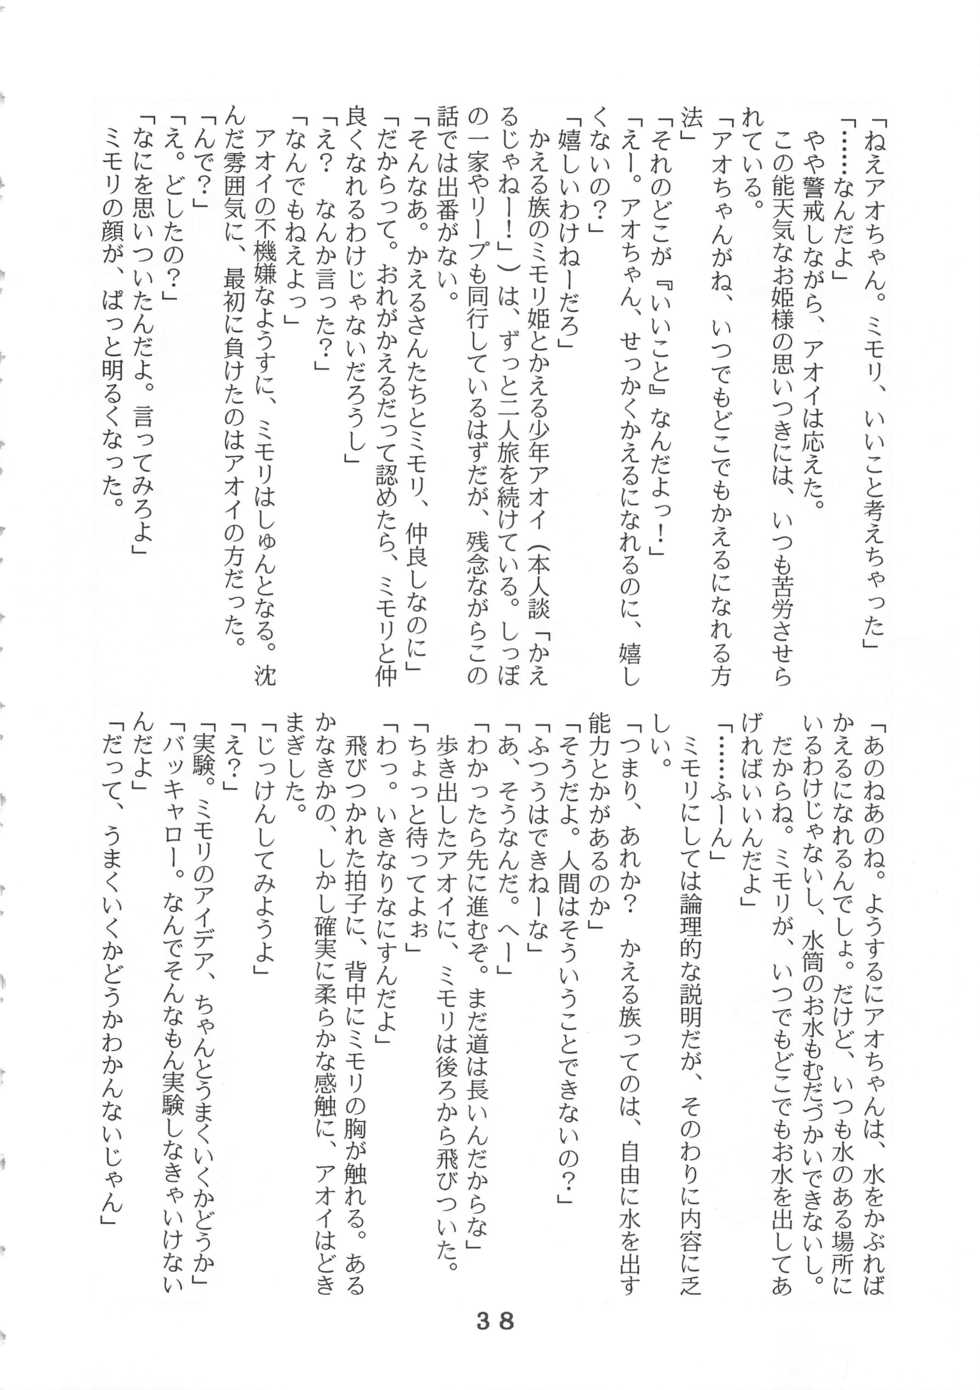 「ねえアオちゃん。ミモリ、いいこと考えちゃった」
「……なんだよ」
　やや警戒しながら、アオイは応えた。
　この能天気なお姫様の思いつきには、いつも苦労させら
れている。
「アオちゃんがね、いつでもどこでもかえるになれる方
法」
「それのどこが『いいこと』なんだよっ！」
「えー。アオちゃん、せっかくかえるになれるのに、嬉し
くないの？」
「嬉しいわけねーだろ」
　かえる族のミモリ姫とかえる少年アオイ（本人談「かえ
るじゃねー！」）は、ずっと二人旅を続けている。しっぽ
の一家やリープも同行しているはずだが、残念ながらこの
話では出番がない。
「そんなあ。かえるさんたちとミモリ、仲良しなのに」
「だからって。おれがかえるだって認めたら、ミモリと仲
良くなれるわけじゃないだろうし」
「え？　なんか言った？」
「なんでもねえよっ」
　アオイの不機嫌なようすに、ミモリはしゅんとなる。沈
んだ雰囲気に、最初に負けたのはアオイの方だった。
「んで？」
「え。どしたの？」
「なにを思いついたんだよ。言ってみろよ」
　ミモリの顔が、ぱっと明るくなった。
「あのねあのね。ようするにアオちゃんは、水をかぶれば
かえるになれるんでしょ。だけど、いつも水のある場所に
いるわけじゃないし、水筒のお水もむだづかいできないし。
　だからね。ミモリが、いつでもどこでもお水を出してあ
げればいいんだよ」
「……ふーん」
　ミモリにしては論理的な説明だが、そのわりに内容に乏
しい。
「つまり、あれか？　かえる族ってのは、自由に水を出す
能力とかがあるのか」
「そうだよ。人間はそういうことできないの？」
「ふつうはできねーな」
「あ、そうなんだ。へー」
「わかったら先に進むぞ。まだ道は長いんだからな」
　歩き出したアオイに、ミモリは後ろから飛びついた。
「ちょっと待ってよぉ」
「わっ。いきなりなにすんだよ」
　飛びつかれた拍子に、背中にミモリの胸が触れる。ある
かなきかの、しかし確実に柔らかな感触に、アオイはどき
まぎした。
「じっけんしてみようよ」
「え？」
「実験。ミモリのアイデア、ちゃんとうまくいくかどうか」
「バッキャロー。なんでそんなもん実験しなきゃいけない
んだよ」
「だって、うまくいくかどうかわかんないじゃん」
３８